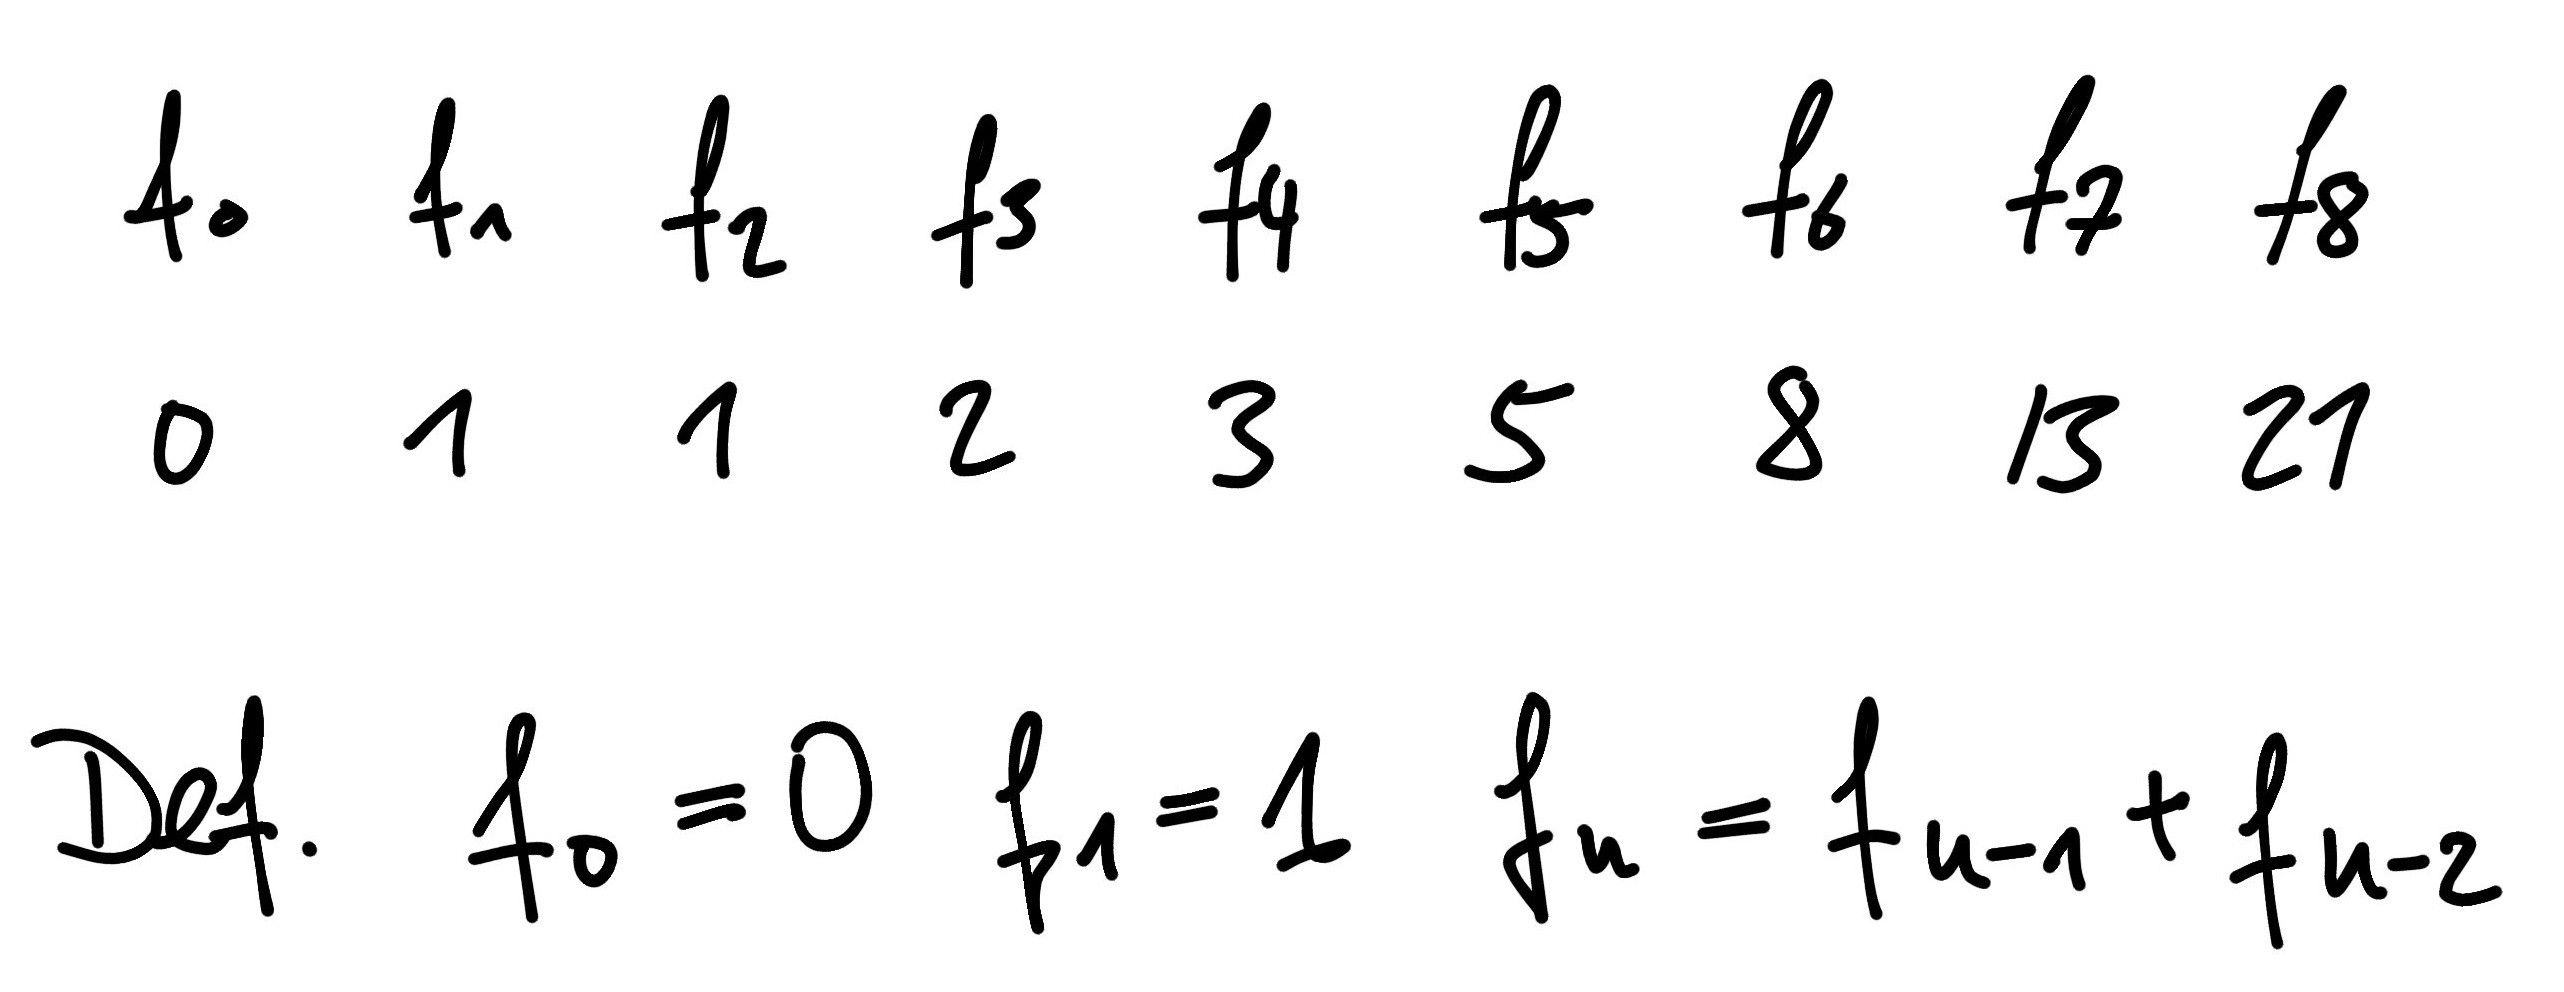 f0 f1 f2 f3 f4 f5 f6 f7 f8
0 1 1 2 3 5 8 13 21
Def. f0 = 0 f1 = 1 fn = fn-1 + fn-2